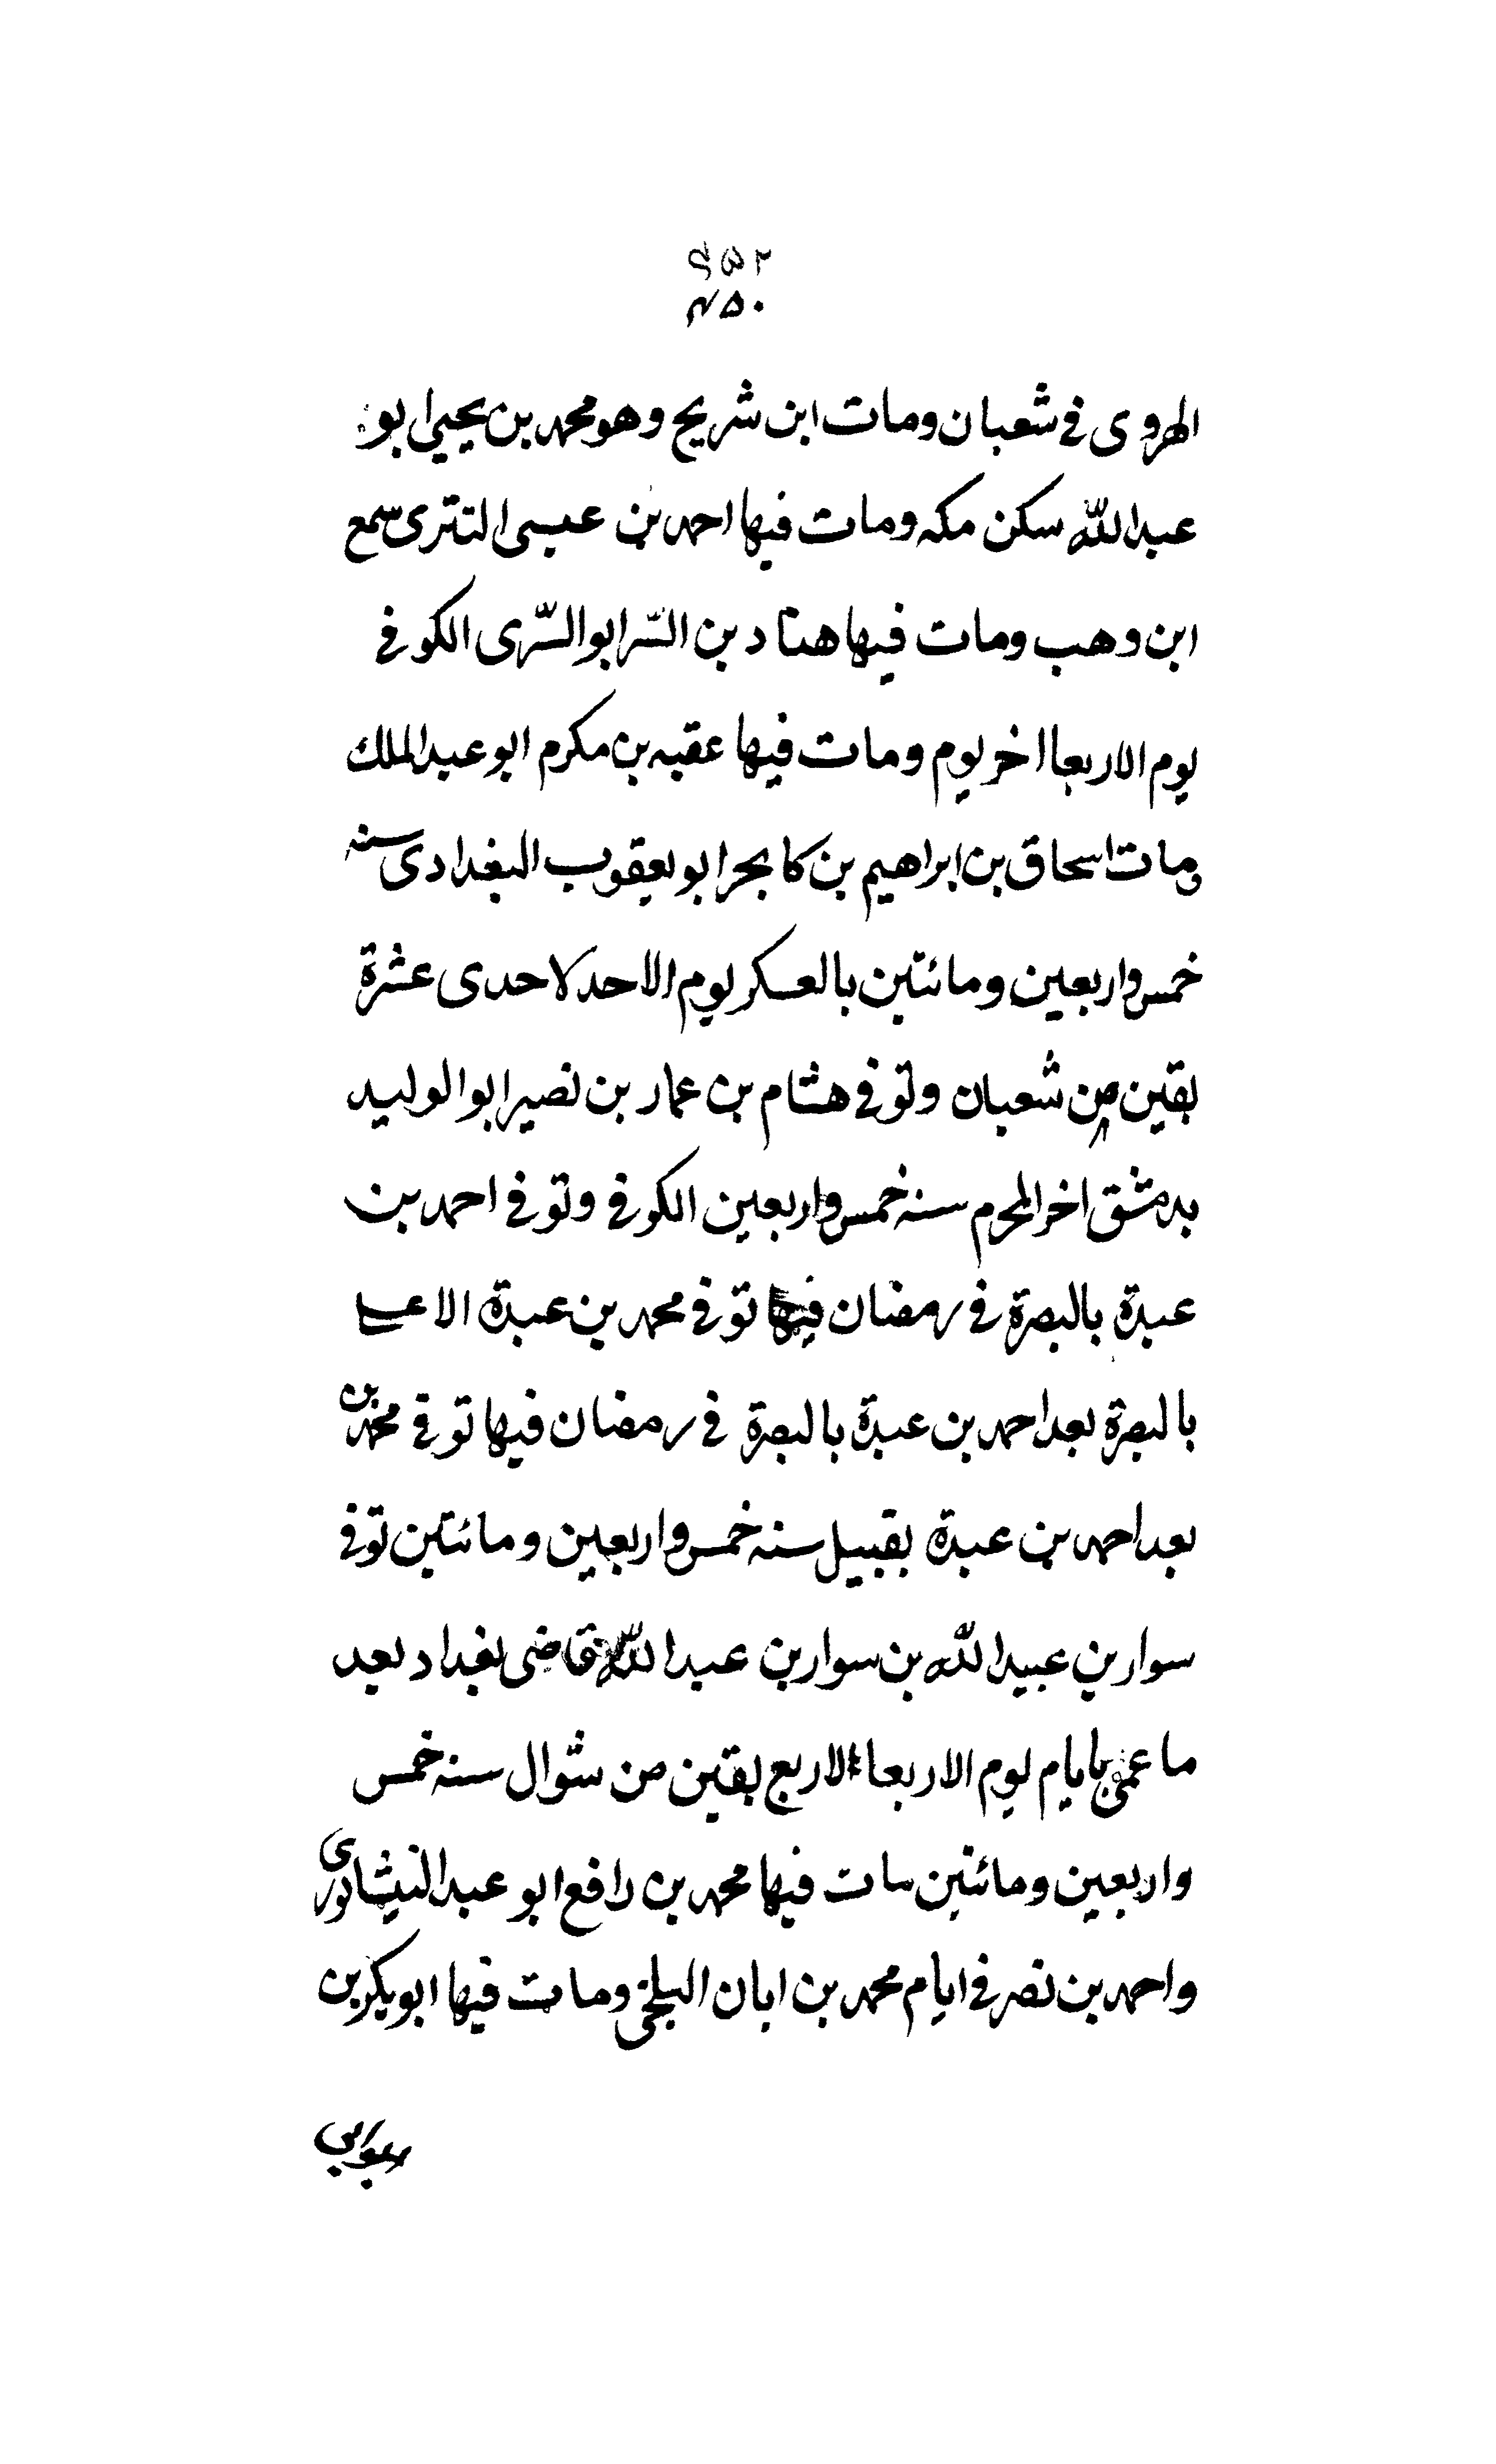 الهروى فى شعبان ومات ابن شريح وهو محمد بن يحيى ابو
عبد الله سكن مكه ومات فيها احمد بن عيسى التترى سمع
ابن وهب ومات فيها هناد بن السر ابو السرى الكوفى
يوم الاربعا اخر يوم ومات فيها عقبه بن مكرم ابو عبد الملك
ومات اسحاق بن ابراهيم بن كابجر ابو يعقوب البغدادى سنه
خمس واربعين ومائتين بالعسكر يوم الاحد لاحدى عشرة
بقين من شعبان وتوفى هشام بن عمار بن نصير ابو الوليد
بدمشق اخر المحرم سنه خمس واربعين الكوفى وتوفى احمد بن
عبدة بالبصرة فى رمضان فيها توفى محمد بن عبدة الاعلى
بالبصرة بعد احمد بن عبدة بالبصرة فى رمضان فيها توفى محمد بن
بعد احمد بن عبدة بقبيل سنه خمس واربعين ومائتين توفى
سوار بن عبيد الله بن سوار بن عبد الله قاضى بغداد بعد
ما عمى بايام يوم الاربعاء لاربع بقين من شوال سنه خمس
واربعين ومائتين مات فيها محمد بن رافع ابو عبد النيشابورى
واحمد بن نصر فى ايام محمد بن ابان البلخى ومات فيها ابو بكر بن